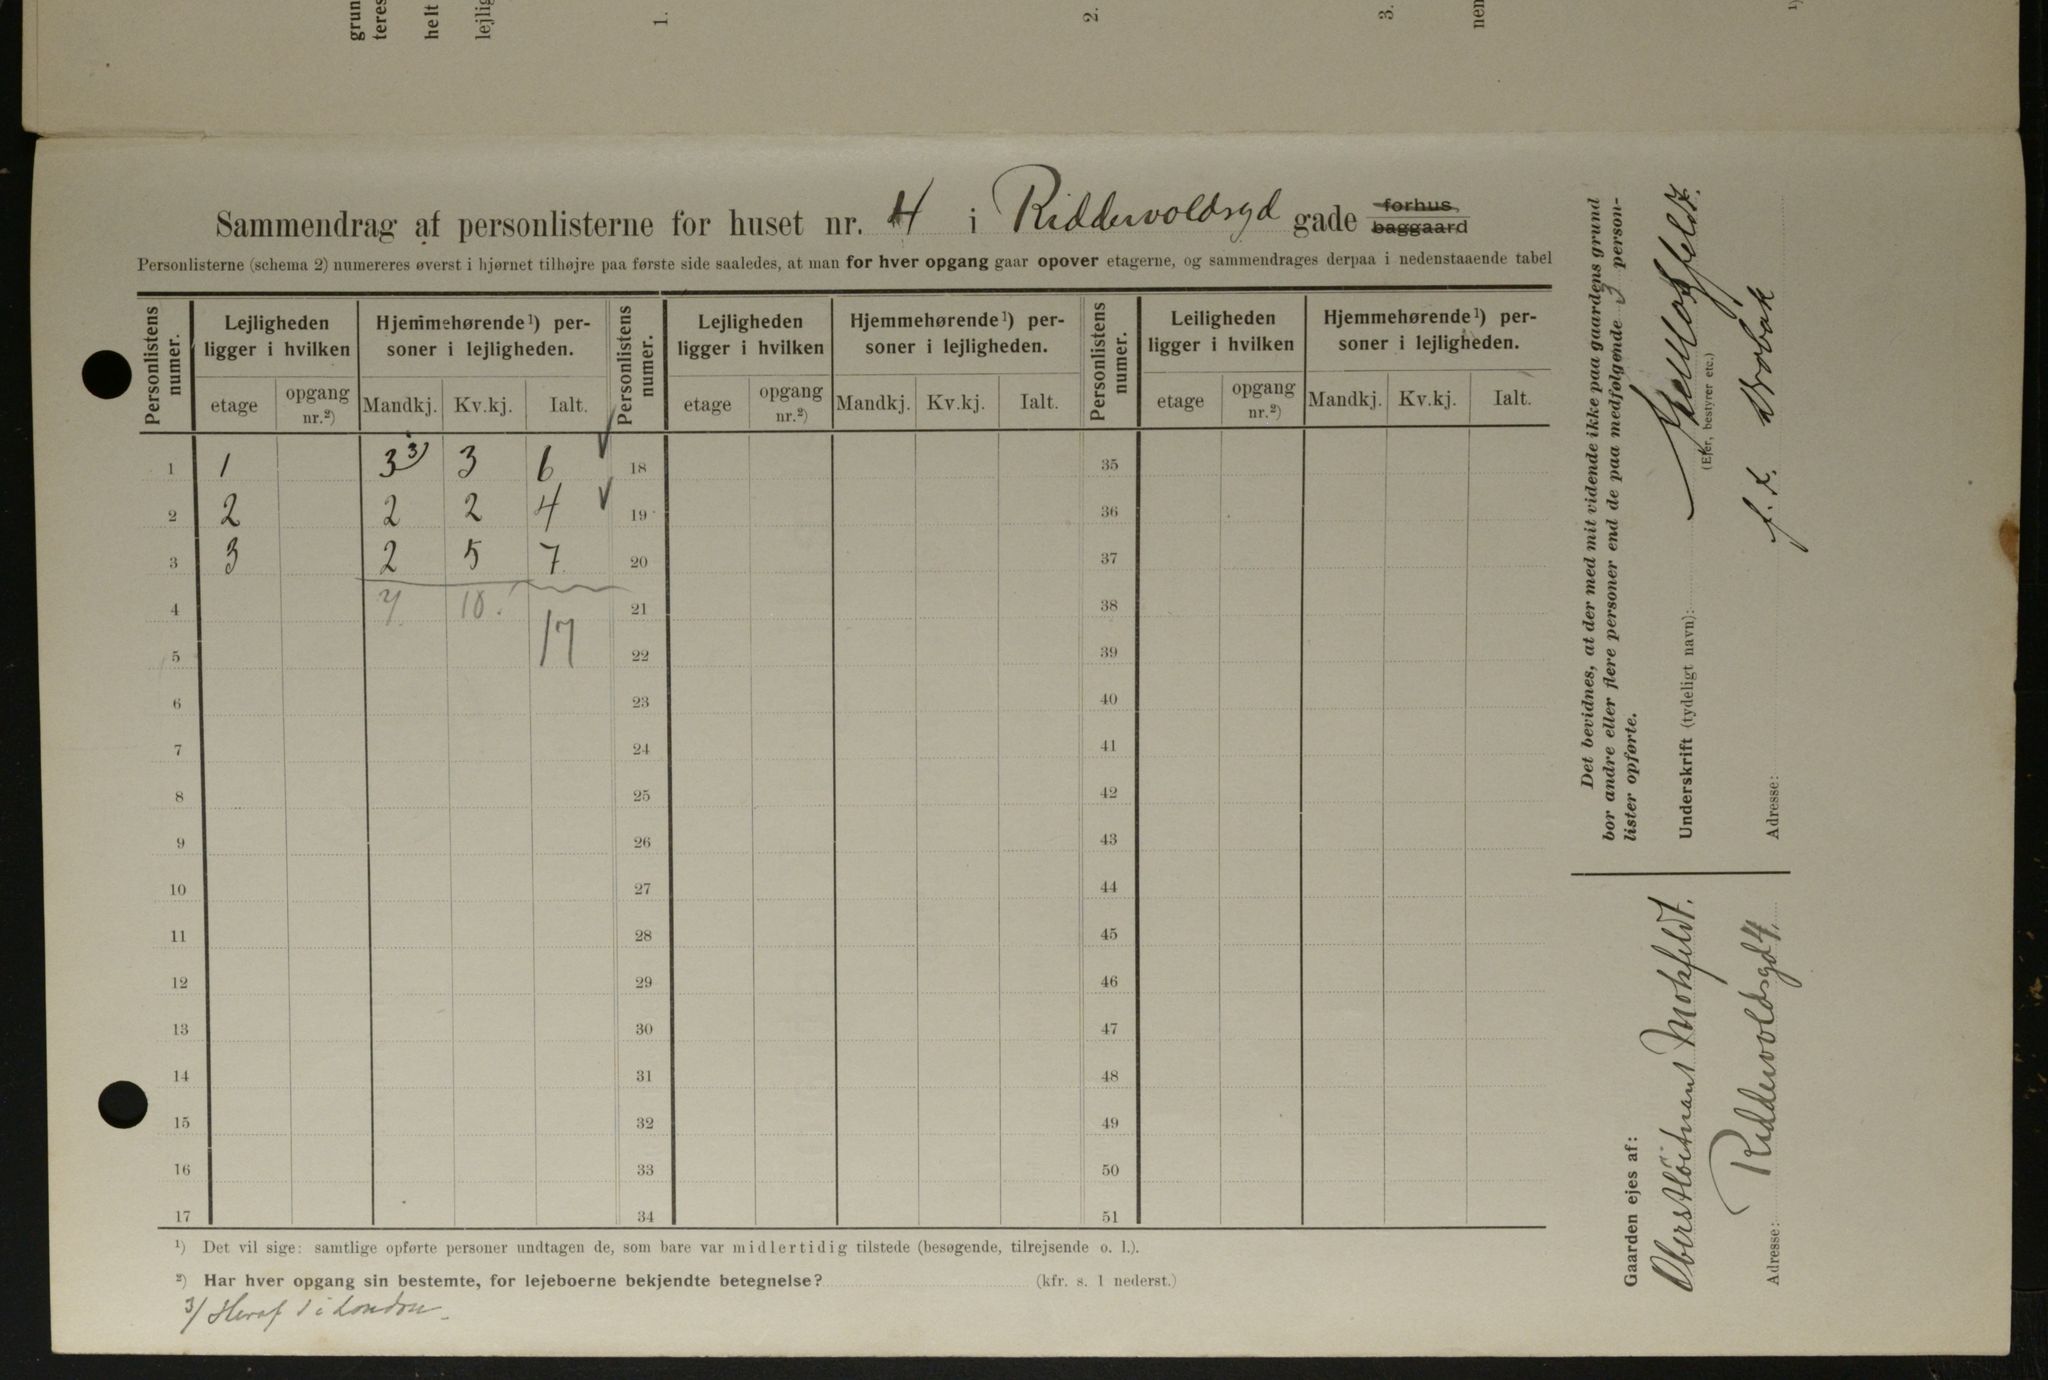 grun
teres
helt
lejlig
1.
2.
3.
nen
1)
Sammendrag af personlisterne for huset nr. 4 i Riddervoldsgd gade forhus baggaard
Personlisterne (schema 2) numereres øverst i hjørnet tilhøjre paa første side saaledes, at man for hver opgang gaar opover etagerne, og sammendrages derpaa i nedenstaaende tabel
Personlistens numer. Lejligheden ligger i hvilken Hjemmehørende¹) personer i lejligheden. Personlistens numer. Lejligheden ligger i hvilken Hjemmehørende¹) personer i lejligheden. Personlistens numer. Leiligheden ligger i hvilken Hjemmehørende¹) personer i lejligheden.
etage opgang nr.²) Mandkj. Kv.kj. Ialt. etage opgang nr.²) Mandkj. Kv.kj. Ialt. etage opgang nr.²) Mandkj. Kv.kj. Ialt.
1 1 3 3) 3 6 18 35
2 2 2 2 4 19 36
3 3 2 5 7 20 37
4 7 10. 21 38
5 17 22 39
6 23 40
7 24 41
8 25 42
9 26 43
10 27 44
11 28 45
12 29 46
13 30 47
14 31 48
15 32 49
16 33 50
17 34 51
¹) Det vil sige: samtlige opførte personer undtagen de, som bare var midlertidig tilstede (besøgende, tilrejsende o. l.).
²) Har hver opgang sin bestemte, for lejeboerne bekjendte betegnelse? (kfr. s. 1 nederst.)
3/ Heraf 1 i London
Det bevidnes, at der med mit vidende ikke paa gaardens grund
bor andre eller flere personer end de paa medfølgende 3 person-
lister opførte.
Underskrift (tydeligt navn):
(Ejer, bestyrer etc.)
Adresse: f. t. Drøbak
Gaarden ejes af:
Oberstløitnant Mohfeldt.
Adresse: Riddervoldsgd 4.